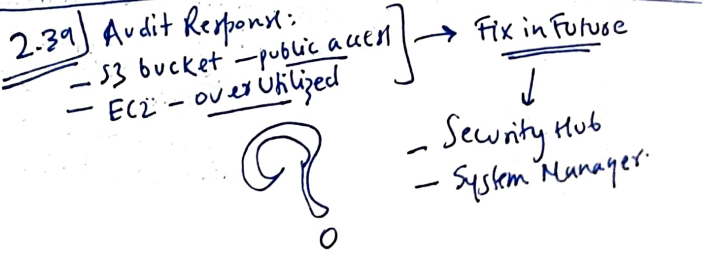 2.39) Audit Response:
- S3 bucket - public access
- EC2 - over Utilized
→ Fix in Future
↓
- Security Hub
- System Manager.
?